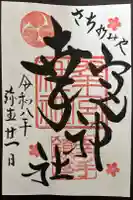 さちのみや
幸宮神社
令和八年
弥生廿一日